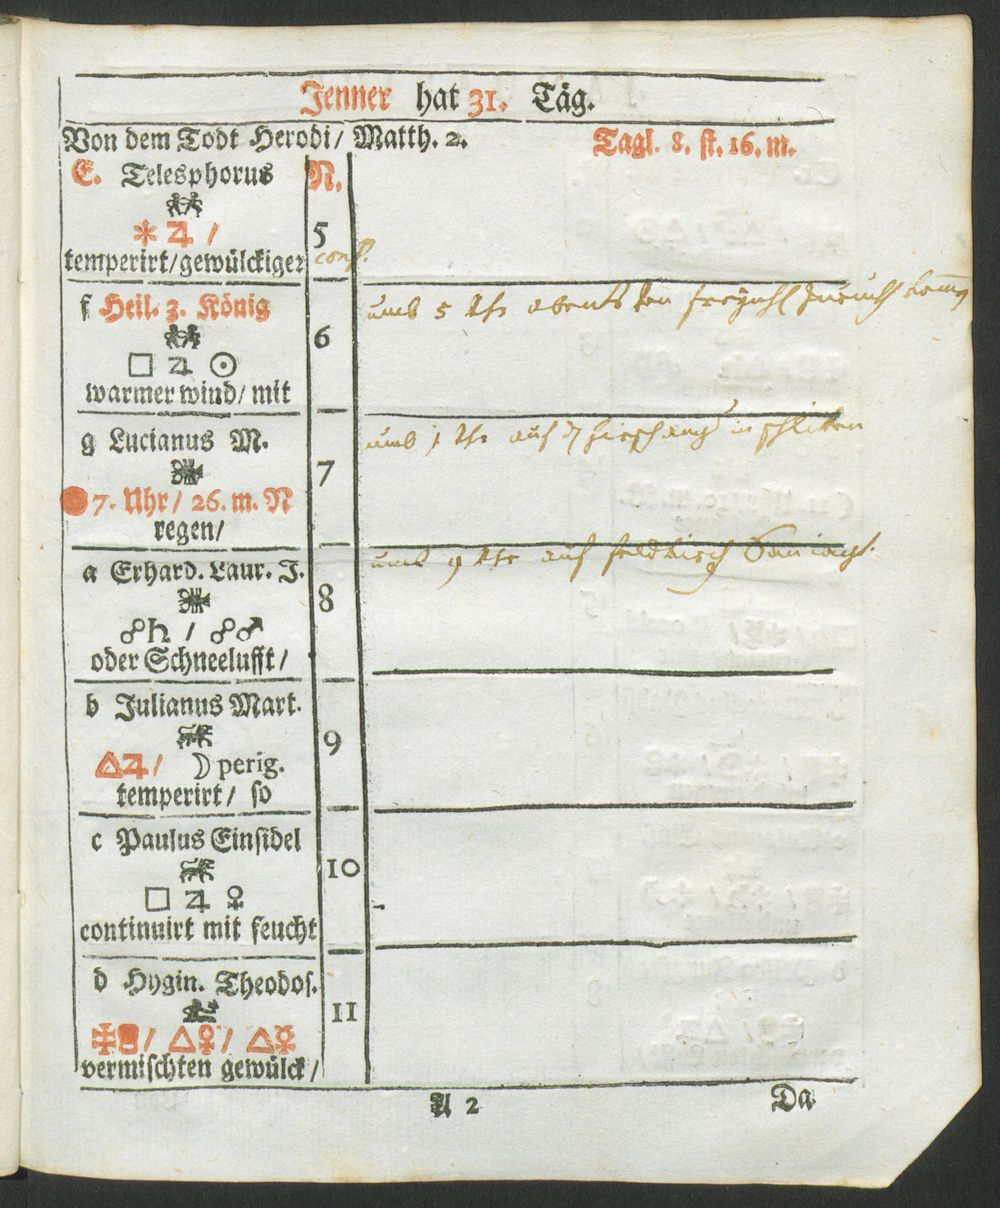 Jenner hat 31. Täg.
Von dem Todt Herodi / Matth. 2. Tagl. 8. st. 16. m.
E. Telesphorus N.
⚹ ♃ / 5
temperirt/gewülckiger conf.
f Heil. 3. König
umb 5 Uhr abents
6
□ ♃ ☉
warmer wind / mit
g Lucianus M.
umb 1 Uhr auf in schlitten
7
7. Uhr / 26. m. N
regen /
a Erhard. Laur. J.
umb 9 Uhr auf feldkirch
8
☍ ♄ / ☍ ♂
oder Schneelufft /
b Julianus Mart.
9
△ ♃ / ☽ perig.
temperirt / so
c Paulus Einsidel
10
□ ♃ ♀
continuirt mit feucht
d Hygin. Theodos.
11
/ △ ♀ / △ ☿
vermischten gewülck /
A 2 Da